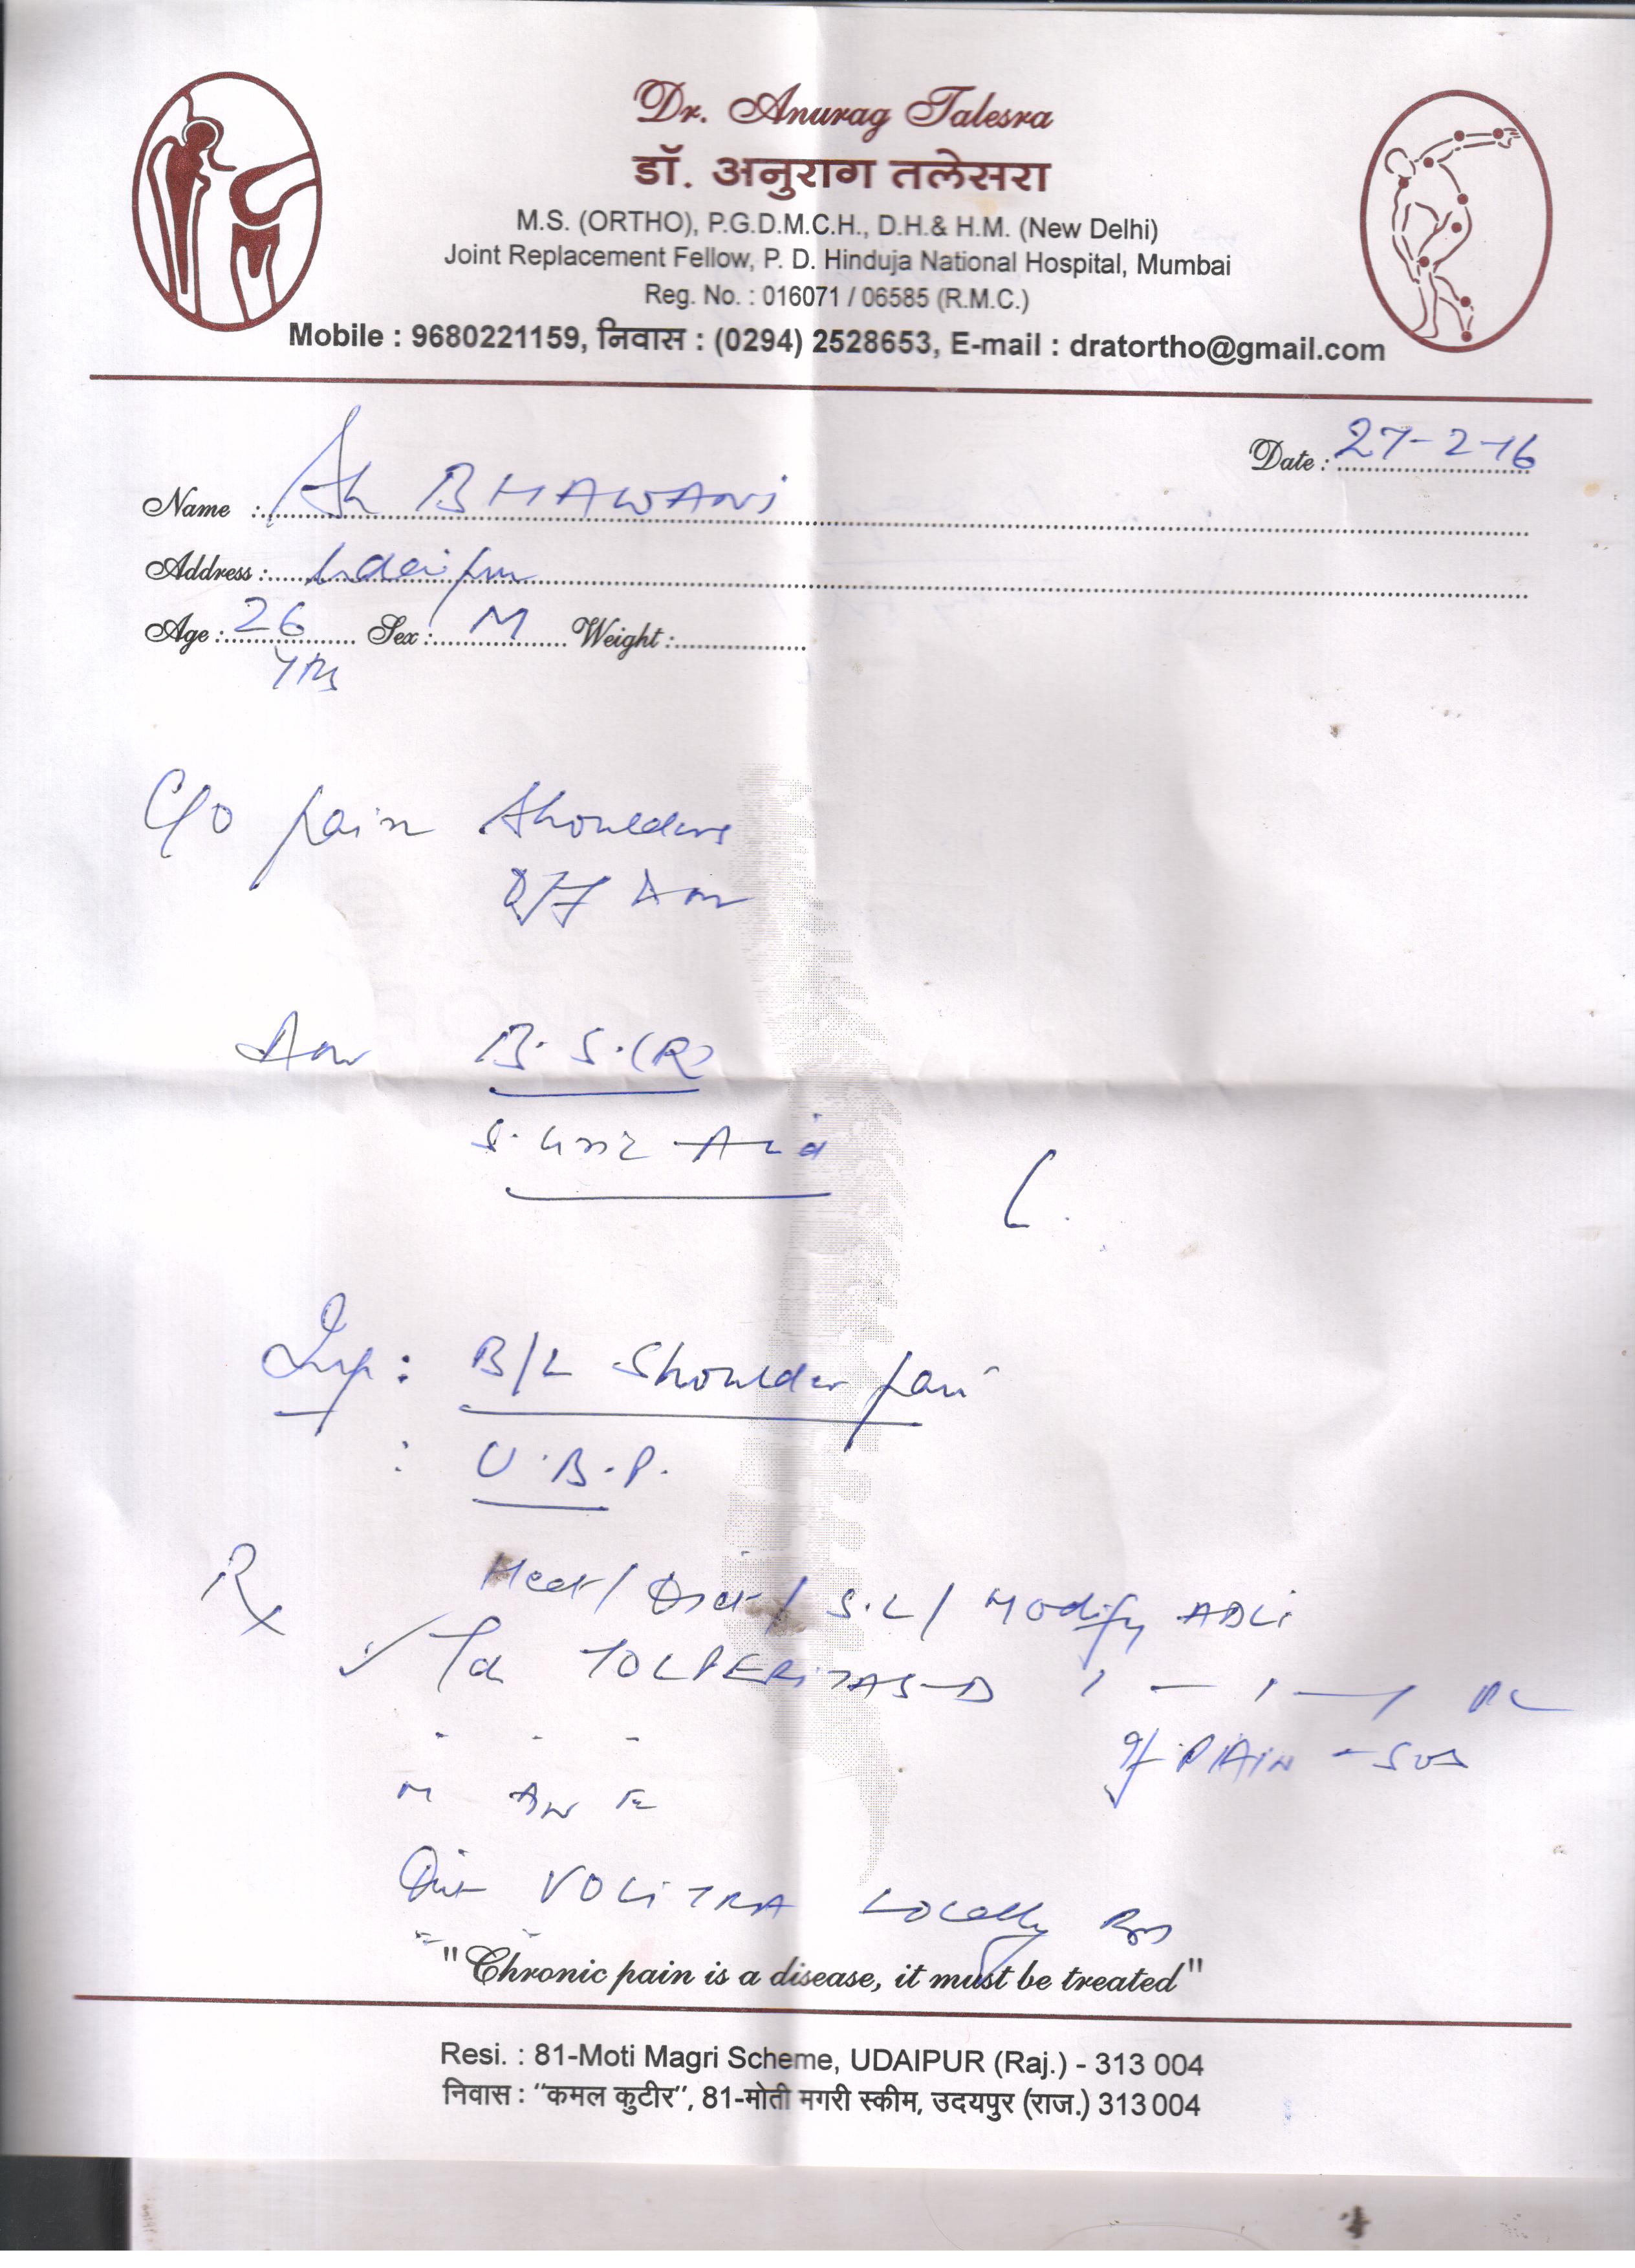 Dr. Anurag Talesra
डॉ. अनुराग तलेसरा
M.S. (ORTHO), P.G.D.M.C.H., D.H.& H.M. (New Delhi)
Joint Replacement Fellow, P. D. Hinduja National Hospital, Mumbai
Reg. No. : 016071 / 06585 (R.M.C.)
Mobile : 9680221159, निवास : (0294) 2528653, E-mail : dratortho@gmail.com
Date : 27-2-16
Name : BHAWANi
Address : Udaipur
Age : 26 Sex : M Weight :
YRS
C/O pain Shoulders
B. S. (R)
S. Uric Acid
Imp : B/L Shoulder pain
: U.B.P.
Rx Heat / Diet / S.L / Modify ADLs
✓ TOLPERITAS-D 1 — 1 —
If PAiN - SOS
Oint VOLiTRA Locally
"Chronic pain is a disease, it must be treated"
Resi. : 81-Moti Magri Scheme, UDAIPUR (Raj.) - 313 004
निवास : “कमल कुटीर”, 81-मोती मगरी स्कीम, उदयपुर (राज.) 313 004